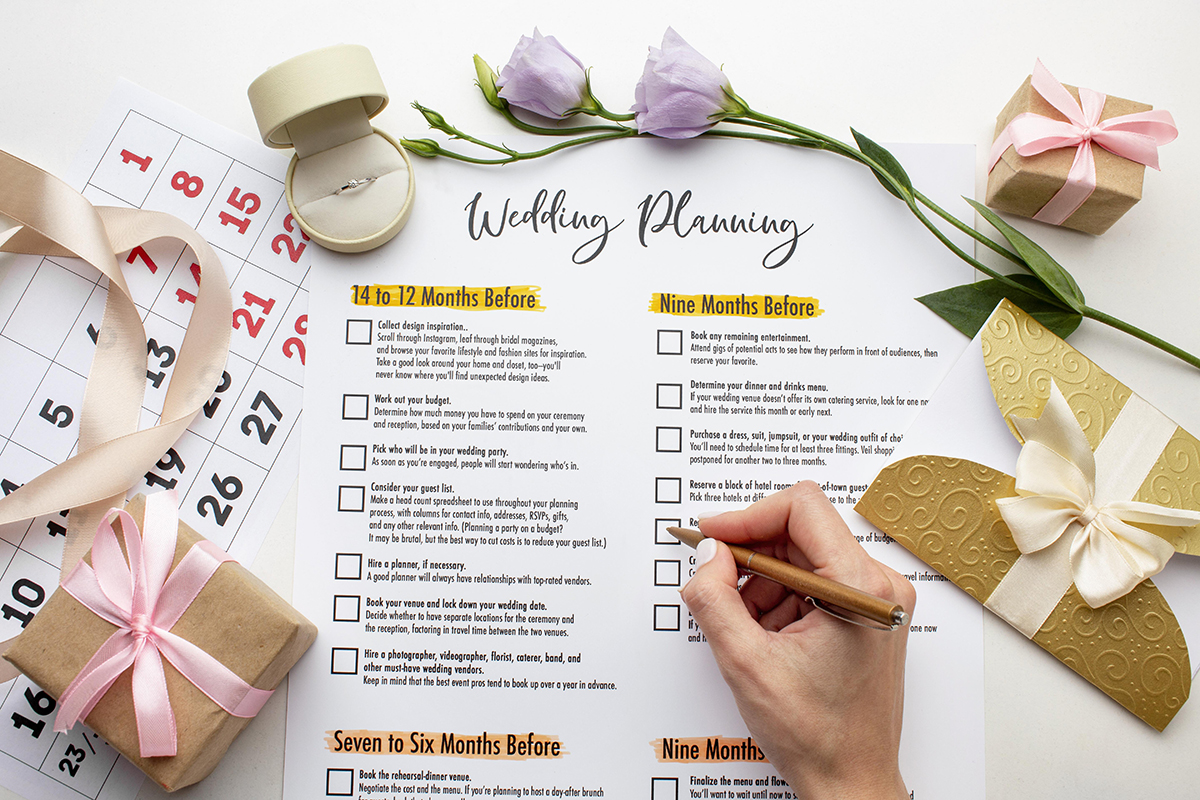 Wedding Planning
14 to 12 Months Before
Collect design inspiration..
Scroll through Instagram, leaf through bridal magazines,
and browse your favorite lifestyle and fashion sites for inspiration.
Take a good look around your home and closet, too—you'll
never know where you'll find unexpected design ideas.
Work out your budget.
Determine how much money you have to spend on your ceremony
and reception, based on your families' contributions and your own.
Pick who will be in your wedding party.
As soon as you're engaged, people will start wondering who's in.
Consider your guest list.
Make a head count spreadsheet to use throughout your planning
process, with columns for contact info, addresses, RSVPs, gifts,
and any other relevant info. (Planning a party on a budget?
It may be brutal, but the best way to cut costs is to reduce your guest list.)
Hire a planner, if necessary.
A good planner will always have relationships with top-rated vendors.
Book your venue and lock down your wedding date.
Decide whether to have separate locations for the ceremony and
the reception, factoring in travel time between the two venues.
Hire a photographer, videographer, florist, caterer, band, and
other must-have wedding vendors.
Keep in mind that the best event pros tend to book up over a year in advance.
Seven to Six Months Before
Book the rehearsal-dinner venue.
Negotiate the cost and the menu. If you're planning to host a day-after brunch
Nine Months Before
Book any remaining entertainment.
Attend gigs of potential acts to see how they perform in front of audiences, then
reserve your favorite.
Determine your dinner and drinks menu.
If your wedding venue doesn't offer its own catering service, look for one now
and hire the service this month or early next.
Purchase a dress, suit, jumpsuit, or your wedding outfit of
You'll need to schedule time for at least three fittings. Veil
postponed for another two to three months.
Reserve a block of hotel rooms of-town guest
Pick three hotels at to the
of budg
travel information
one now
Nine Months
Finalize the menu and
You'll want to wait until now to
1
8
15
7
21
6
13
20
27
5
12
19
26
4
10
16
23/